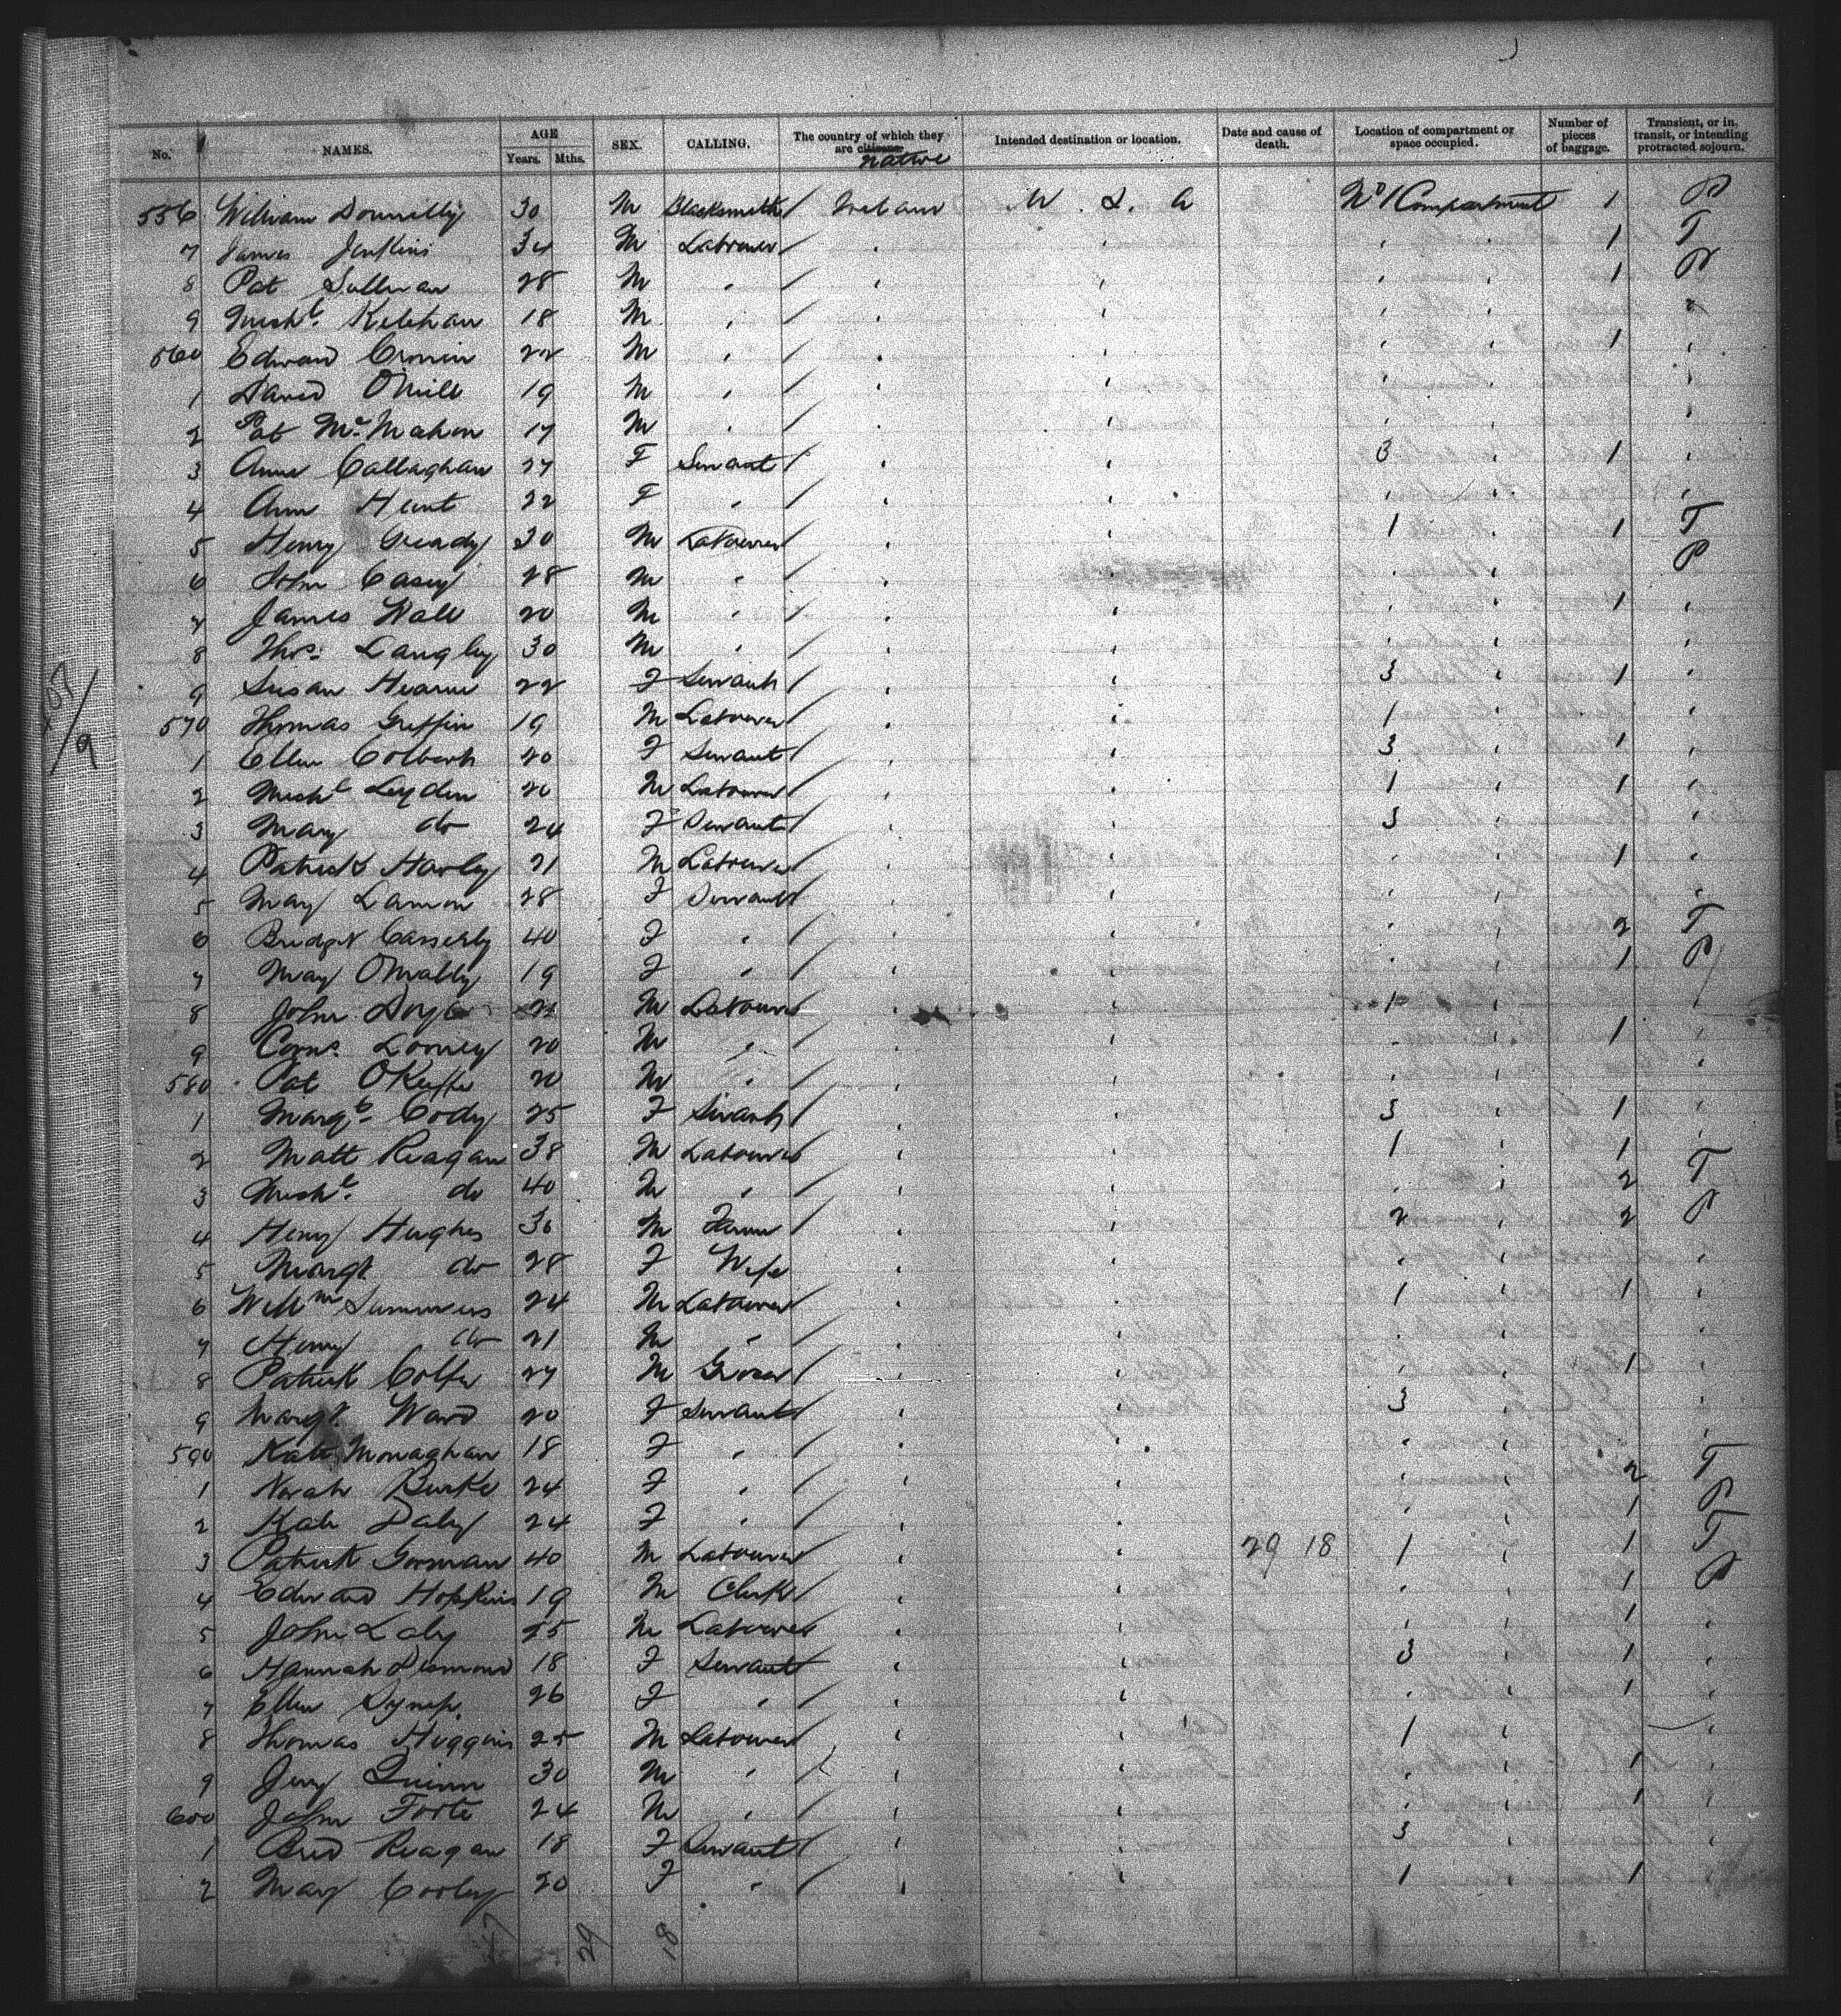 No. NAMES. AGE Years. Mths. SEX. CALLING. The country of which they are citizens native Intended destination or location. Date and cause of death. Location of compartment or space occupied. Number of pieces of baggage. Transient, or in transit, or intending protracted sojourn.
556 William Donnelly 30 M Blacksmith / Ireland U. S. A No 1 Compartment 1 P
7 James Jenkins 34 M Labourer / 1 T
8 Pat Sullivan 28 M " / 1 P
9 Michl. Kelehan 18 M " / "
560 Edward Cronin 22 M " / 1 "
1 David O'Neill 19 M " /
2 Pat McMahon 17 M " /
3 Anne Callaghan 27 F Servant / 3 1 "
4 Ann Hunt 22 F " "
5 Henry Gready 30 M Labourer 1 1 T
6 John Casey 28 M " / P
7 James Wall 20 M " / 1 "
8 Thos. Langley 30 M " / "
9 Susan Hearne 22 F Servant / 3 1 "
570 Thomas Griffin 19 M Labourer / 1 "
1 Ellen Colbert 20 F Servant / 3 1 "
2 Michl Leyden 20 M Labourer / 1 1 "
3 Mary do 24 F Servant / 3
4 Patrick Harley 21 M Labourer / " 1 "
5 Mary Lamon 28 F Servant / " "
6 Bridget Casserly 40 F " / " 2 T
7 Mary O'Mally 19 F " / " 1 P
8 John Doyle 21 M Labourer 1
9 Corns. Looney 20 M " / " 1
580 Pat O'Keeffe 20 M " / " "
1 Margt. Cody 25 F Servant / 3 1 "
2 Matt Reagan 38 M Labourer 1 1 "
3 Michl. do 40 M " / " 2 T
4 Henry Hughes 30 M Farmer / 2 2 P
5 Margt do 28 F Wife " "
6 Willm Summers 24 M Labourer / 1 1 "
7 Henry do 21 M " / " "
8 Patrick Colfer 27 M Grocer / " 1 "
9 Margt. Ward 20 F Servant 3 "
590 Kate Monaghan 18 F " / " "
1 Norah Burke 24 F " / " 2 T
2 Kate Daly 24 F " / " 1 P
3 Patrick Gorman 40 M Labourer / 29 18 1 1 T
4 Edward Hopkins 19 M Clerk / " 1 P
5 John Laby 25 M Labourer " 1 "
6 Hannah Desmond 18 F Servant 3 1 "
7 Ellen 26 F " / " 1 "
8 Thomas Huggins 25 M Labourer / 1 "
9 Jerry Quinn 30 M " / " 1 "
600 John Forte 24 M " / " 1 "
1 Brid Reagan 18 F Servant / 3 "
2 Mary Corley 20 F " / 1 1 "
29 18